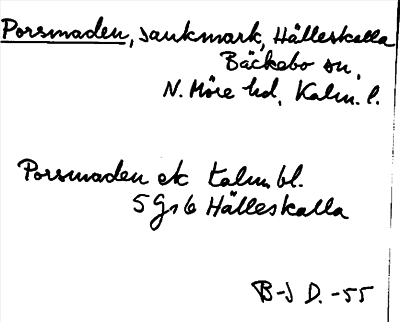 Porsmaden, sankmark, Hälleskalla
Bäckebo sn,
N. Möre hd, Kalm. l.
Porsmaden ek Kalm bl.
5 G 16 Hälleskalla
B-J D. -55